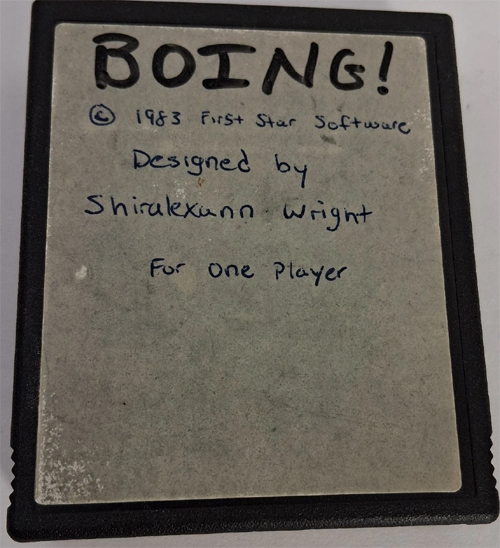 BOING!
© 1983 First Star Software
Designed by
Shiralexann Wright
For One Player